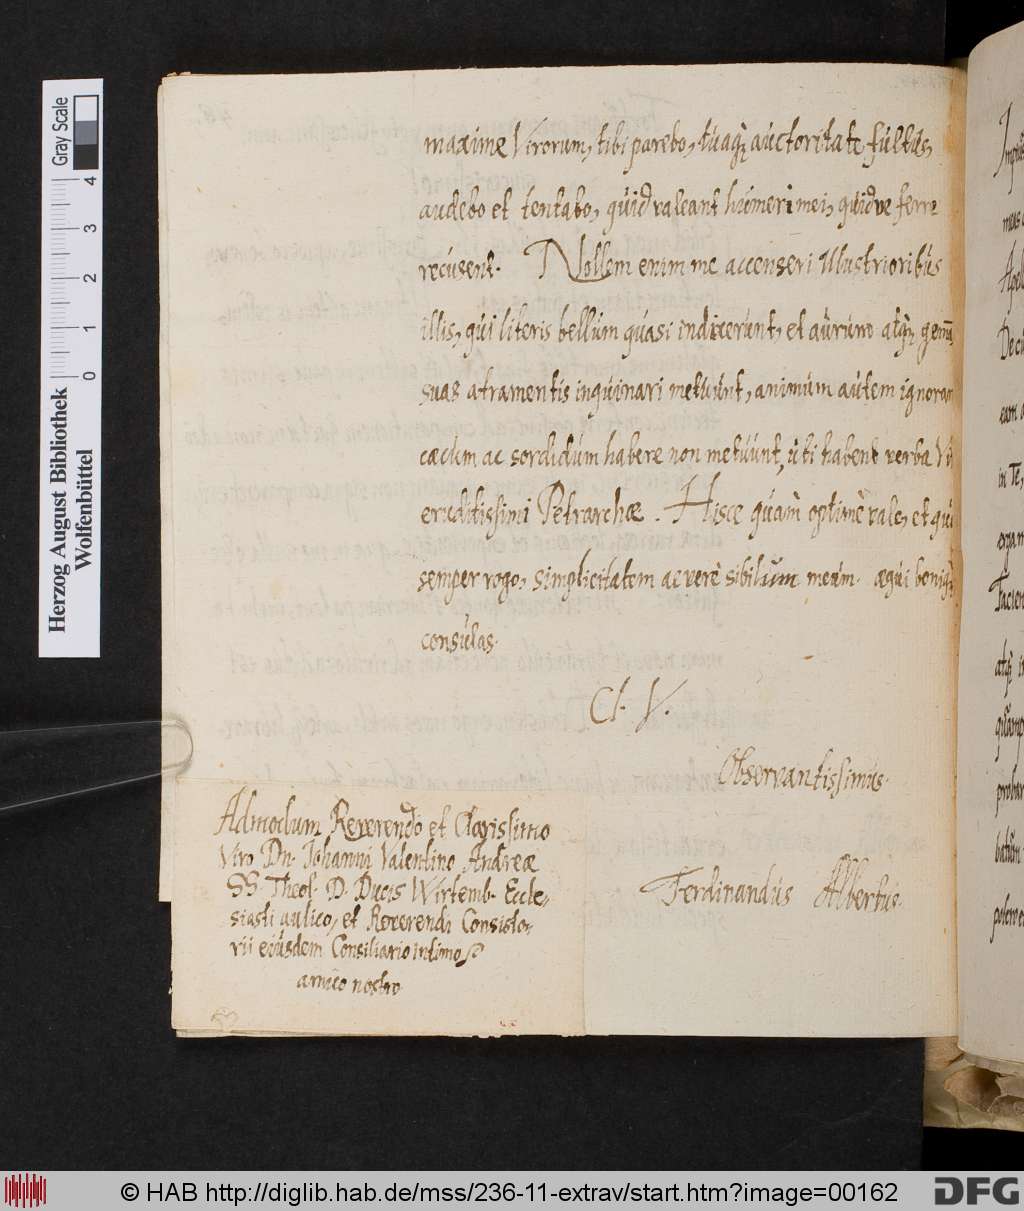 maxime Virorum, tibi parebo, tuaqꝫ auctoritate fultus,
audebo et tentabo, quid valeant humeri mei, quidve ferre
recusent. Nollem enim me accenseri Illustrioribus
illis, qui literis bellum quasi indixerunt, et aurum atqꝫ gemas
suas atramentis inquinari metuunt, animum autem ignoran
cæcum ac sordidum habere non metuunt, uti habent verba
eruditissimi Petrarchæ. Hisce quàm optimè vale, et qui
semper rogo, simplicitatem ac verè sibilum meum æqui boniqꝫ
consulas.
Cl. V.
Observantissimus.
Ferdinandus Albertus.
Admodum Reverendo et Clarissimo
Viro Dn. Johanni Valentino Andreæ
SS. Theol. D. Ducis Wirtemb. Eccle,
siasti aulico, et Reverendi Consisto,
rii eiusdem Consiliario intimo
amico nostro
Herzog August Bibliothek
Wolfenbüttel
0 1 2 3 4
Gray Scale
© HAB http://diglib.hab.de/mss/236-11-extrav/start.htm?image=00162
DFG